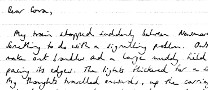 Dear Cora,
My train stopped suddenly between Newmar
Something to do with a signalling problem. Out
make out hurdles and a large muddy field
pacing its edges. The lights flickered for a
My thoughts travelled onwards, up the carria